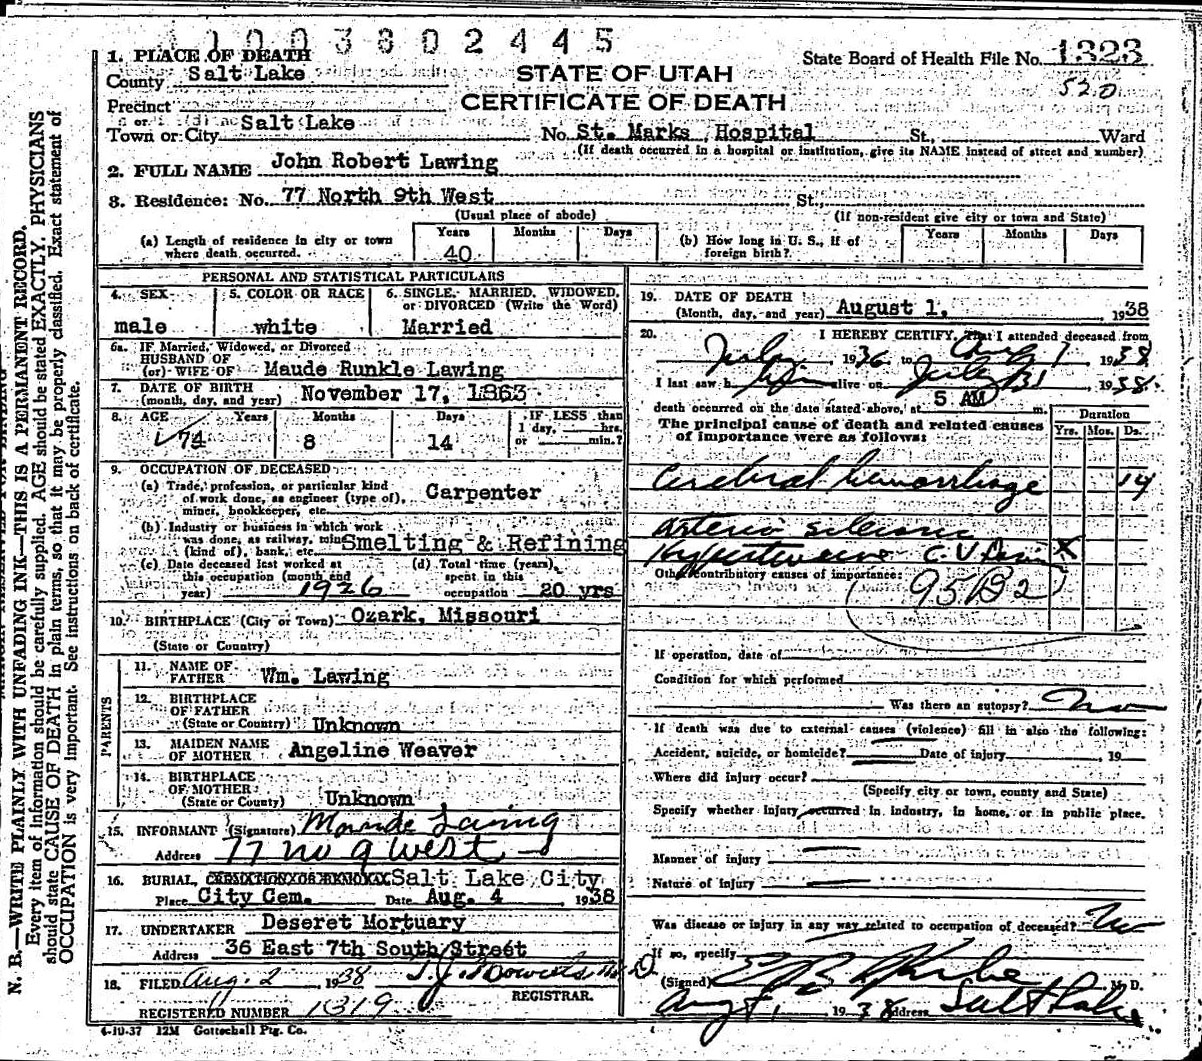 1 0 0 3 8 0 2 4 4 5
1. PLACE OF DEATH
County Salt Lake
Precinct
or
Town or City Salt Lake
State Board of Health File No. 1323
520
STATE OF UTAH
CERTIFICATE OF DEATH
No. St. Marks Hospital St., Ward
(If death occurred in a hospital or institution, give its NAME instead of street and number)
2. FULL NAME John Robert Lawing
3. Residence: No. 77 North 9th West St.,
(Usual place of abode) (If non-resident give city or town and State)
(a) Length of residence in city or town where death occurred. Years 40 Months Days
(b) How long in U. S., if of foreign birth? Years Months Days
PERSONAL AND STATISTICAL PARTICULARS
4. SEX male
5. COLOR OR RACE white
6. SINGLE, MARRIED, WIDOWED, or DIVORCED (Write the Word) Married
6a. IF Married, Widowed, or Divorced
HUSBAND OF
(or) WIFE OF Maude Runkle Lawing
7. DATE OF BIRTH
(month, day, and year) November 17, 1863
8. AGE Years 74 Months 8 Days 14
IF LESS than
1 day, hrs.
or min.?
9. OCCUPATION OF DECEASED
(a) Trade, profession, or particular kind
of work done, as engineer (type of), Carpenter
miner, bookkeeper, etc.
(b) Industry or business in which work
was done, as railway, mine
(kind of), bank, etc. Smelting & Refining
(c) Date deceased last worked at
this occupation (month and
year) 1926
(d) Total time (years),
spent in this
occupation 20 yrs
10. BIRTHPLACE (City or Town) Ozark, Missouri
(State or Country)
PARENTS
11. NAME OF
FATHER Wm. Lawing
12. BIRTHPLACE
OF FATHER
(State or Country) Unknown
13. MAIDEN NAME
OF MOTHER Angeline Weaver
14. BIRTHPLACE
OF MOTHER
(State or County) Unknown
15. INFORMANT (Signature) Maude Lawing
Address 77 no 9 West
16. BURIAL, CREMATION OR REMOVAL Salt Lake City
Place City Cem. Date Aug. 4 1938
17. UNDERTAKER Deseret Mortuary
Address 36 East 7th South Street
18. FILED Aug. 2 1938
REGISTRAR.
REGISTERED NUMBER 1319
4-19-37 12M Gottschall Ptg. Co.
19. DATE OF DEATH
(Month, day, and year) August 1, 1938
20. I HEREBY CERTIFY, That I attended deceased from
July 1936 to Aug 1 1938
I last saw him alive on July 31 1938
death occurred on the date stated above, at 5 AM m.
The principal cause of death and related causes
of importance were as follows:
Duration
Yrs. Mos. Ds.
Cerebral hemorrhage 14
Arterio sclerosis
Hypertensive C. V. X
Other contributory causes of importance:
95B2
If operation, date of
Condition for which performed
Was there an autopsy? No
If death was due to external causes (violence) fill in also the following:
Accident, suicide, or homicide? Date of injury , 19
Where did injury occur?
(Specify city or town, county and State)
Specify whether injury occurred in industry, in home, or in public place.
Manner of injury
Nature of injury
Was disease or injury in any way related to occupation of deceased? No
If so, specify
(Signed) M. D.
Aug 1, 1938 Address Salt Lake
N. B.—WRITE PLAINLY WITH UNFADING INK—THIS IS A PERMANENT RECORD.
Every item of information should be carefully supplied. AGE should be stated EXACTLY. PHYSICIANS
should state CAUSE OF DEATH in plain terms, so that it may be properly classified. Exact statement of
OCCUPATION is very important. See instructions on back of certificate.